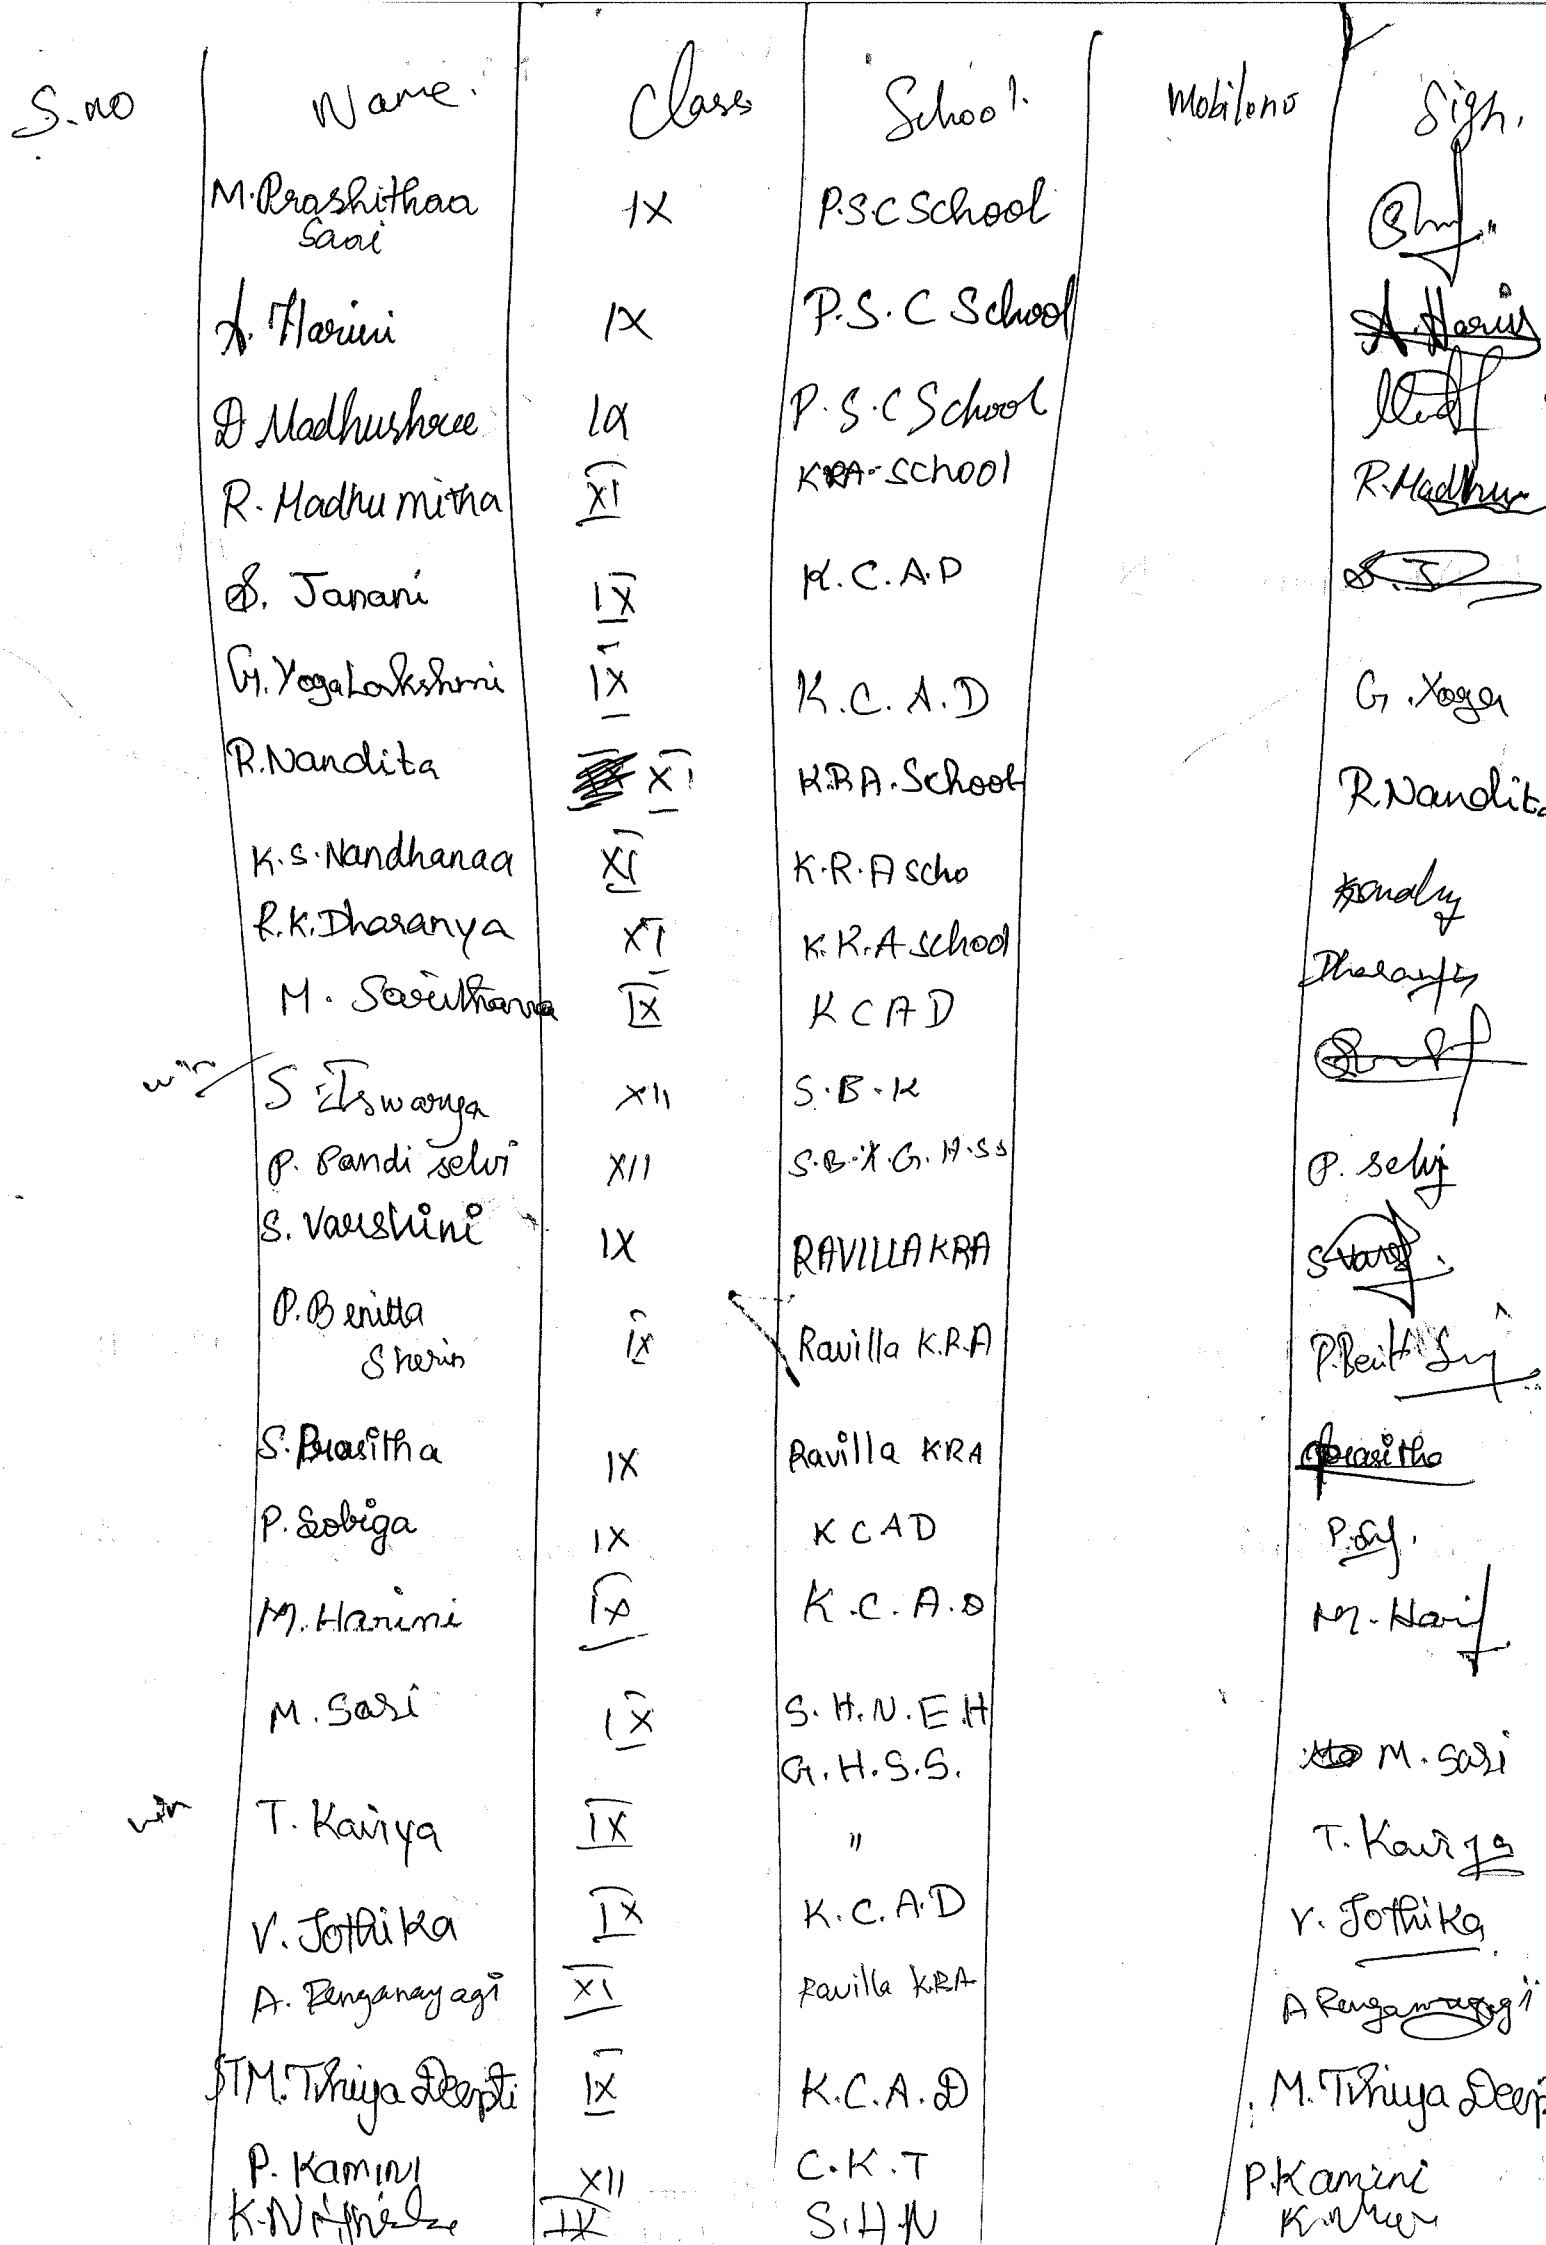 S.no Name. Class School. Mobileno Sign.
M.Prashithaa IX P.S.C School
Sani
A. Harini IX P.S.C School A.Harini
D Madhushree IX P.S.C School
R. Madhumitha XI KRA-School R.Madhu
S. Janani IX K.C.A.D S.J
G.YogaLakshmi IX K.C.A.D G.Yoga
R.Nandita XI K.R.A.School R.Nandita
K.S.Nandhanaa XI K.R.A scho
R.K.Dharanya XI K.R.A school
M. IX KCAD
win S Iswarya XII S.B.K
P. Pandi selvi XII S.B.K.G.H.SS P. selvi
S. Varshini IX RAVILLA KRA
P.Benitta IX Ravilla K.R.A
Sherin
S.Prasitha IX Ravilla KRA Prasitha
P.Sobiga IX KCAD
M.Harini IX K.C.A.D M.Hari
M.Sasi IX S.H.N.E.H
G.H.S.S. M.sasi
win T.Kaviya IX " T.Kaviya
V.Jothika IX K.C.A.D V.Jothika
A. Renganayagi XI Ravilla KRA A Renganayagi
STM.Thiya Deepti IX K.C.A.D M.Thiya Deep
P. Kamini XII C.K.T P.Kamini
IX S.H.N